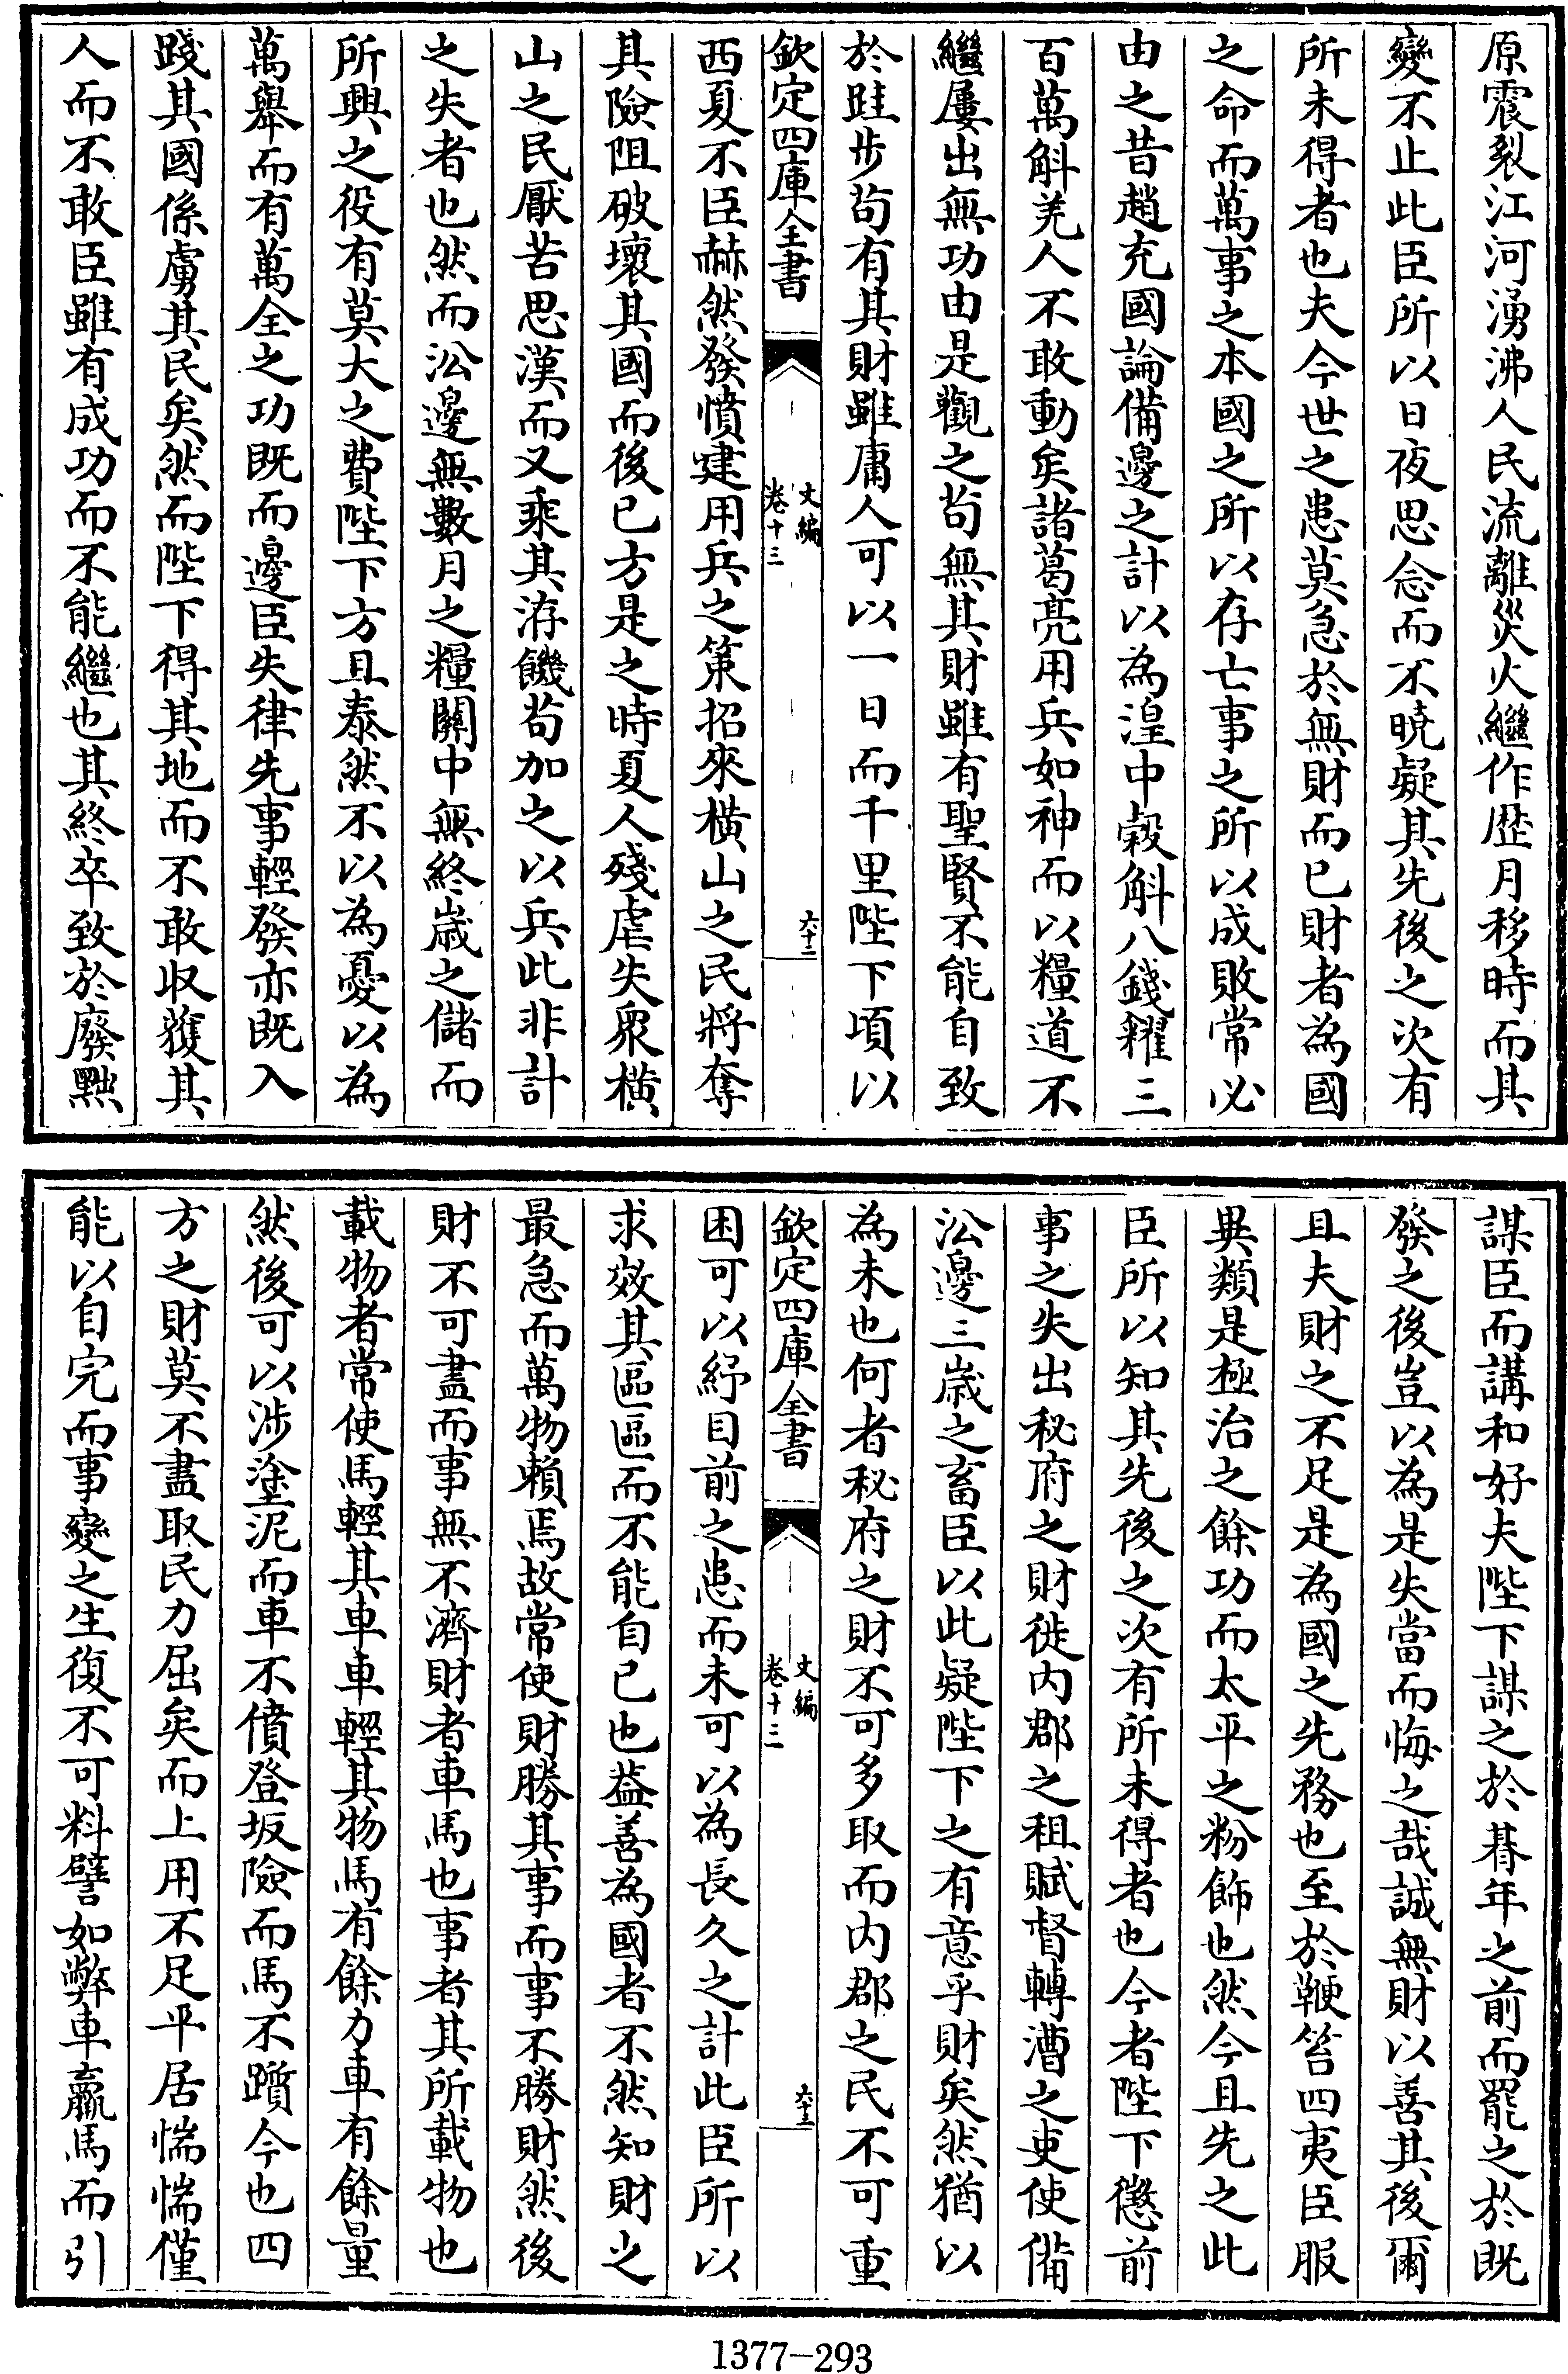 原震裂江河湧沸人民流離災火繼作歴月移時而其
變不止此臣所以日夜思念而不曉疑其先後之次有
所未得者也夫今世之患莫急於無財而已財者為國
之命而萬事之本國之所以存亡事之所以成敗常必
由之昔趙充國論備邊之計以為湟中穀斛八錢糴三
百萬斛羌人不敢動矣諸葛亮用兵如神而以糧道不
繼屢出無功由是觀之茍無其財雖有聖賢不能自致
於跬步茍有其財雖庸人可以一日而千里陛下頃以
欽定四庫全書
文編
卷十三
六十二
西夏不臣赫然發憤建用兵之策招來橫山之民將奪
其險阻破壞其國而後已方是之時夏人殘虐失衆橫
山之民厭苦思漢而又乘其洊饑茍加之以兵此非計
之失者也然而沿邊無數月之糧關中無終歳之儲而
所興之役有莫大之費陛下方且泰然不以為憂以為
萬舉而有萬全之功既而邊臣失律先事輕發亦既入
踐其國係虜其民矣然而陛下得其地而不敢収獲其
人而不敢臣雖有成功而不能繼也其終卒致於廢黜
謀臣而講和好夫陛下謀之於朞年之前而罷之於既
發之後豈以為是失當而悔之哉誠無財以善其後爾
且夫財之不足是為國之先務也至於鞭笞四夷臣服
異類是極治之餘功而太平之粉飾也然今且先之此
臣所以知其先後之次有所未得者也今者陛下懲前
事之失出秘府之財徙内郡之租賦督轉漕之吏使備
沿邊三歳之畜臣以此疑陛下之有意乎財矣然猶以
為未也何者秘府之財不可多取而内郡之民不可重
欽定四庫全書
文編
卷十三
六十三
困可以紓目前之患而未可以為長久之計此臣所以
求效其區區而不能自已也葢善為國者不然知財之
最急而萬物賴焉故常使財勝其事而事不勝財然後
財不可盡而事無不濟財者車馬也事者其所載物也
載物者常使馬輕其車車輕其物馬有餘力車有餘量
然後可以涉塗泥而車不僨登坂險而馬不躓今也四
方之財莫不盡取民力屈矣而上用不足平居惴惴僅
能以自完而事變之生復不可料譬如弊車羸馬而引
1377-293